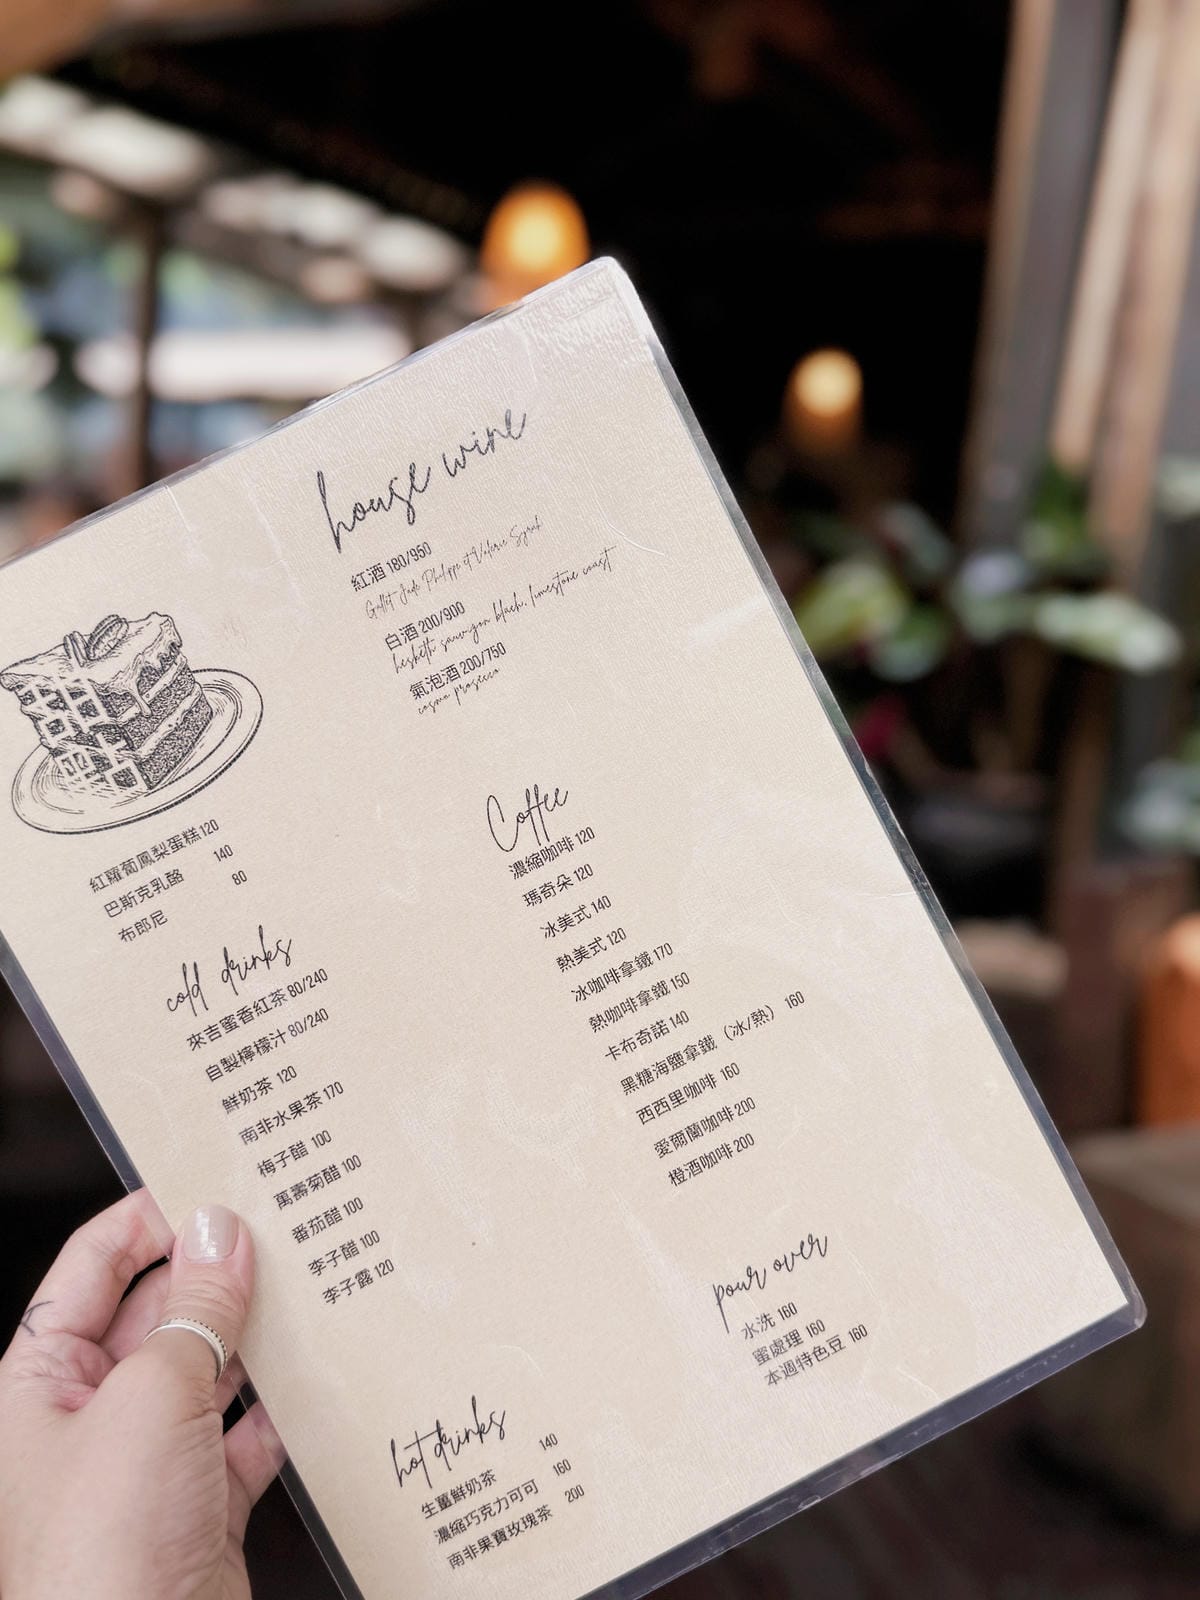 house wine
紅酒 180/950
Gallet Jade Philippe et Valerie Syrah
白酒 200/900
hesketh sauvignon blach, limestone coast
氣泡酒 200/750
cosmo prosecco
紅蘿蔔鳳梨蛋糕 120
巴斯克乳酪 140
布郎尼 80
cold drinks
來吉蜜香紅茶 80/240
自製檸檬汁 80/240
鮮奶茶 120
南非水果茶 170
梅子醋 100
萬壽菊醋 100
番茄醋 100
李子醋 100
李子露 120
Coffee
濃縮咖啡 120
瑪奇朵 120
冰美式 140
熱美式 120
冰咖啡拿鐵 170
熱咖啡拿鐵 150
卡布奇諾 140
黑糖海鹽拿鐵（冰/熱） 160
西西里咖啡 160
愛爾蘭咖啡 200
橙酒咖啡 200
pour over
水洗 160
蜜處理 160
本週特色豆 160
hot drinks
生薑鮮奶茶 140
濃縮巧克力可可 160
南非果寶玫瑰茶 200